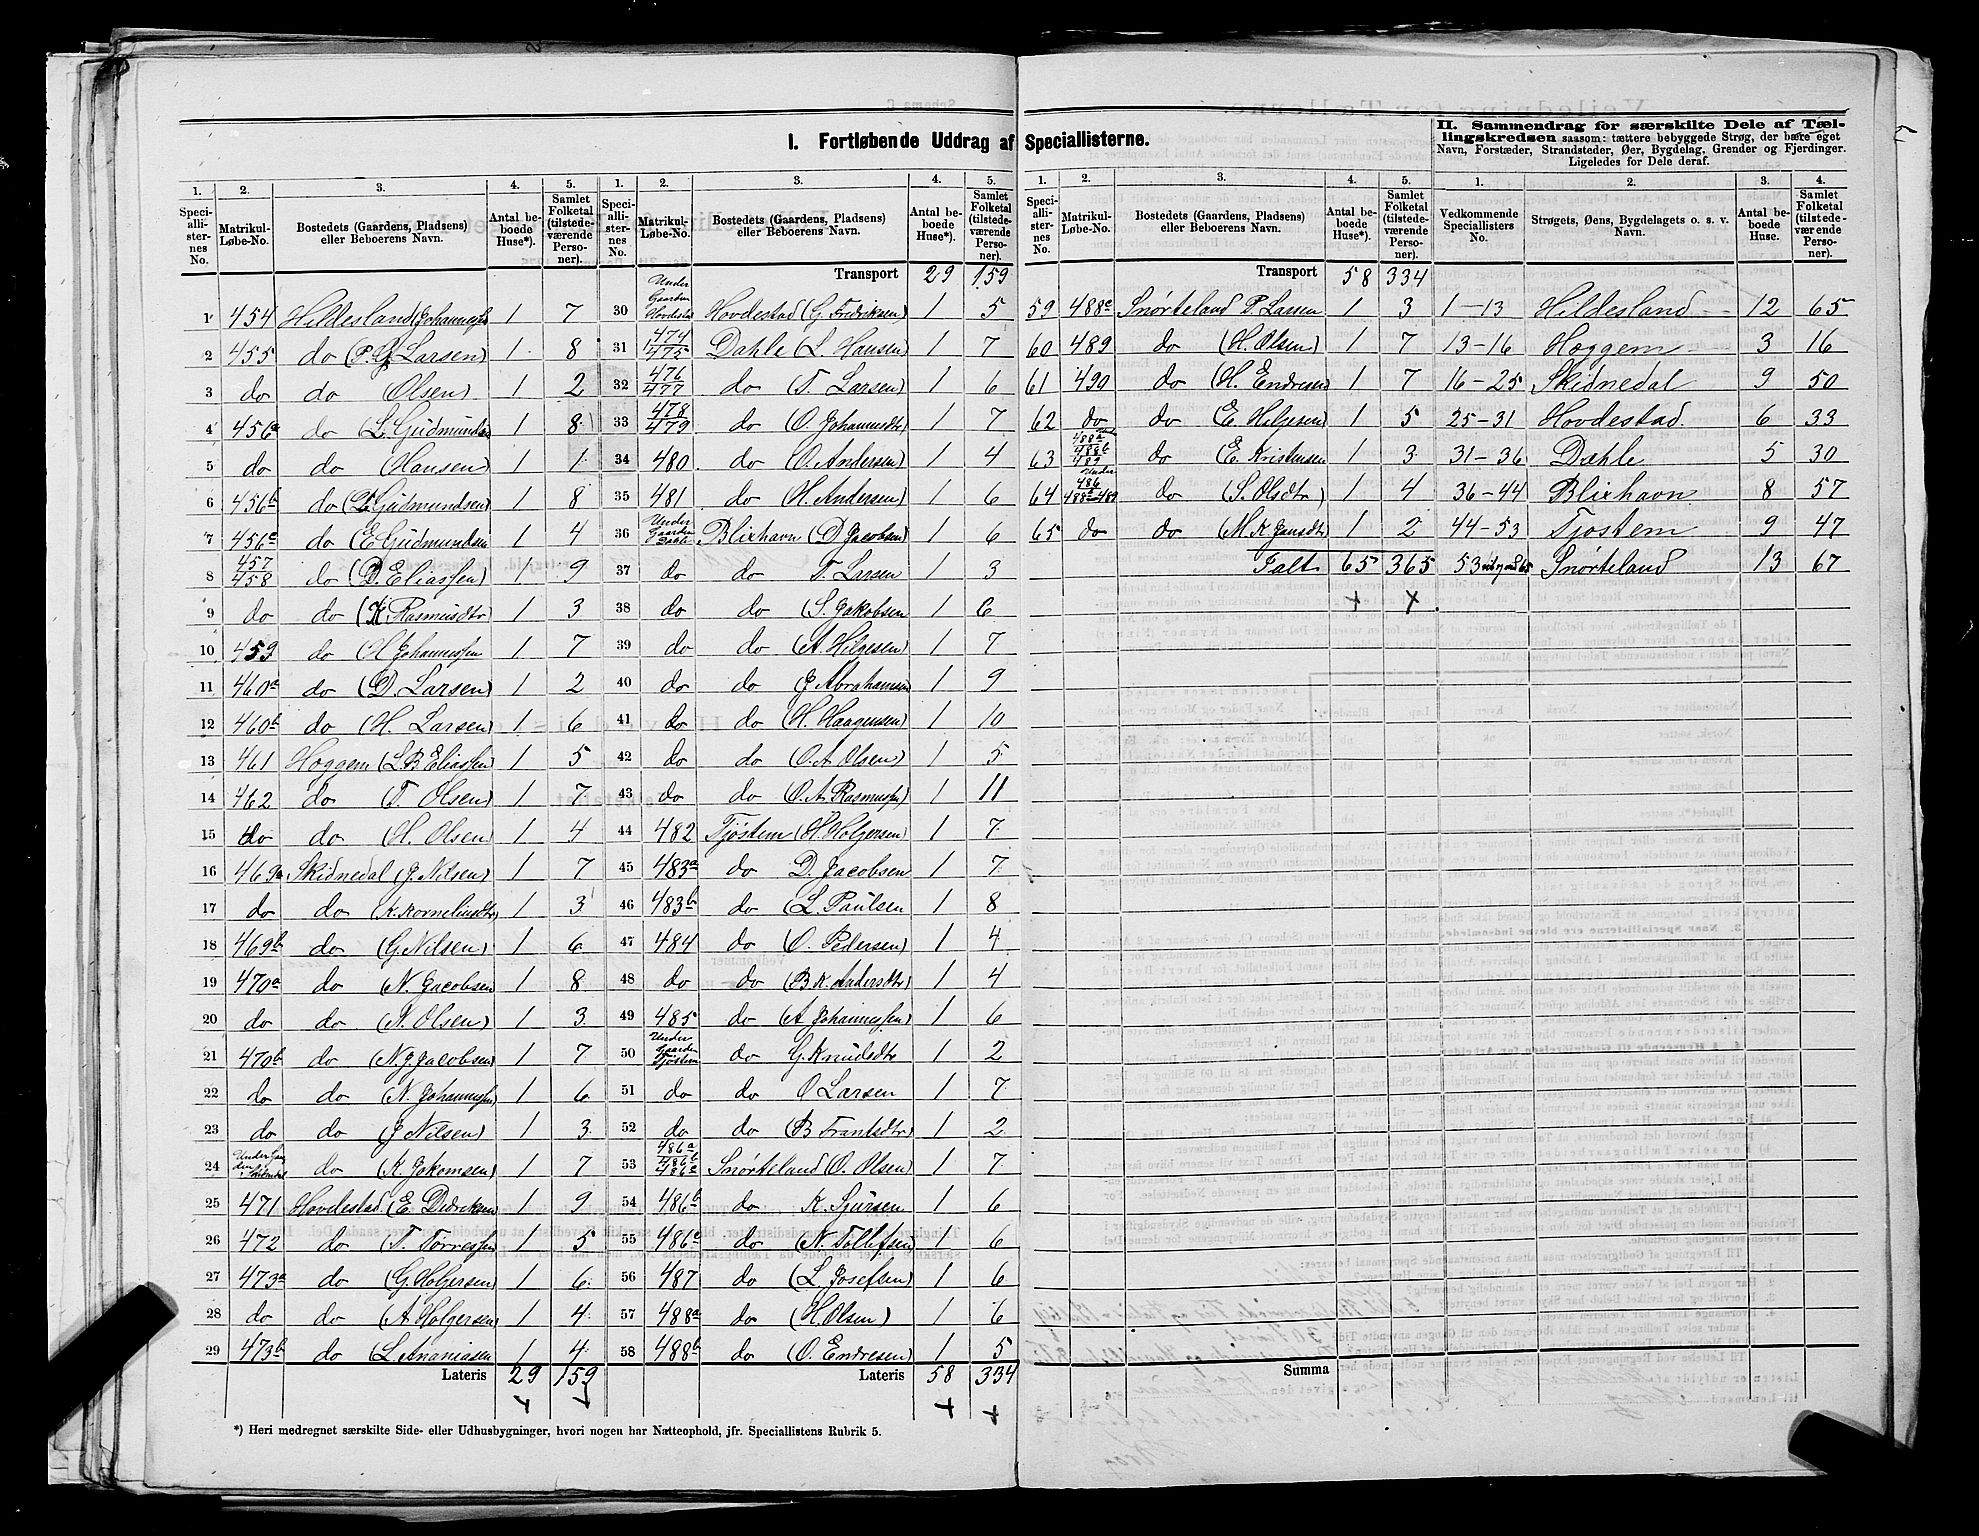 I. Fortløbende Uddrag af Speciallisterne.
1. 2. 3. 4. 5.
Speci-allister-nes No. | Matrikul-Løbe-No. | Bostedets (Gaardens, Pladsens) eller Beboerens Navn. | Antal beboede Huse*). | Samlet Folketal (tilstedeværende Personer).
1 454 Hildesland (Johannessen 1 7
2 455 do (P. G. Larsen) 1 8
3 do do Olsen) 1 2
4 456a do (L. Gudmundsen 1 8
5 do do Hansen) 1 1
6 456b do (L. Gudmundsen) 1 8
7 456c do (E Gudmundsen 1 4
8 457 458 do (D. Eliassen) 1 9
9 do do (K Rasmusdtr 1 3
10 459 do H Johannessen 1 7
11 460a do (D. Larsen) 1 2
12 460b do (H. Larsen) 1 6
13 461 Hoggem (L B Eliassen) 1 5
14 462 do (T. Olsen) 1 7
15 do do (H. Olsen) 1 4
16 469a Skidnedal (J Nilsen) 1 7
17 do do (K. Korneliusdtr) 1 3
18 469b do (G Nilsen) 1 6
19 470a do (N. Jacobsen 1 8
20 do do (N. Olsen) 1 3
21 470b do (N. J. Jacobsen) 1 7
22 do do (N. Johannessen) 1 6
23 do do (J Nilsen) 1 3
24 Under Gaarden Skidnedal do (K. Jokomsen) 1 7
25 471 Hovdestad (E. Didriksen 1 9
26 472 do (T. Torressen 1 5
27 473a do (G. Holgersen) 1 6
28 do do (A Holgersen) 1 4
29 473b do (L. Ananiasen 1 4
Lateris 29 159
1. 2. 3. 4. 5.
Speci-allister-nes No. | Matrikul-Løbe-No. | Bostedets (Gaardens, Pladsens) eller Beboerens Navn. | Antal beboede Huse*). | Samlet Folketal (tilstedeværende Personer).
Transport 29 159
30 Under Gaarden Hovdestad Hovdestad (G. Fredriksen) 1 5
31 474 475 Dahle (L. Hansen) 1 7
32 476 477 do (T. Larsen) 1 6
33 478 479 do (O. Johannesdtr) 1 7
34 480 do (O. Andersen) 1 4
35 481 do (H. Andersen) 1 6
36 Under Gaarden Dahle Blixhavn (D Jacobsen) 1 6
37 do do T. Larsen 1 3
38 do do (S. Jakobsen 1 6
39 do do (A. Hilgesen) 1 7
40 do do (J Abrahamsen 1 9
41 do do (H. Haagensen) 1 10
42 do do (O. A Olsen) 1 5
43 do do (O. A. Rasmussen) 1 11
44 482 Tjøstem (H. Holgersen) 1 7
45 483a do D. Jacobsen 1 7
46 483b do (L. Paulsen 1 8
47 484 do (O. Pedersen) 1 4
48 do do (B K. Andersdtr) 1 4
49 485 do (A Johannessen) 1 6
50 Under Gaarden Tjøstem do G. Knudsdtr 1 2
51 do do O Larsen 1 7
52 do do (B Frantsdtr) 1 2
53 486a 486b 486c Snørteland (O. Olsen) 1 7
54 486b do K. Sjursen 1 6
55 486c do (N. Tollefsen) 1 6
56 487 do (L. Josefsen) 1 6
57 488a do (H. Olsen) 1 6
58 488b do (O. Endresen) 1 5
Lateris 58 334
*) Heri medregnet særskilte Side- eller Udhusbygninger, hvori nogen har Natteophold, jfr. Speciallistens Rubrik 5.
1. 2. 3. 4. 5.
Speci-allister-nes No. | Matrikul-Løbe-No. | Bostedets (Gaardens, Pladsens) eller Beboerens Navn. | Antal beboede Huse*). | Samlet Folketal (tilstedeværende Personer).
Transport 58 334
59 488c Snørteland P. Larsen 1 3
60 489 do (H. Olsen) 1 7
61 490 do (H. Endresen) 1 7
62 do do (E Helgesen) 1 5
63 Under 488a 488b 489 do (E. Kristensen 1 3
64 Under 486 488a-489 do (S. Olsdtr) 1 4
65 do do (M. K. Jansdtr) 1 2
Ialt 65 365
Summa
II. Sammendrag for særskilte Dele af Tællingskredsen saasom: tættere bebyggede Strøg, der bære eget Navn, Forstæder, Strandsteder, Øer, Bygdelag, Grender og Fjerdinger. Ligeledes for Dele deraf.
1. 2. 3. 4.
Vedkommende Speciallisters No. | Strøgets, Øens, Bygdelagets o. s. v. Navn. | Antal beboede Huse. | Samlet Folketal (tilstedeværende Personer).
1-13 Hildesland 12 65
13-16 Hoggem 3 16
16-25 Skidnedal 9 50
25-31 Hovdestad 6 33
31-36 Dahle 5 30
36-44 Blixhavn 8 57
44-53 Tjøstem 9 47
53 til og med 65 Snørteland 13 67